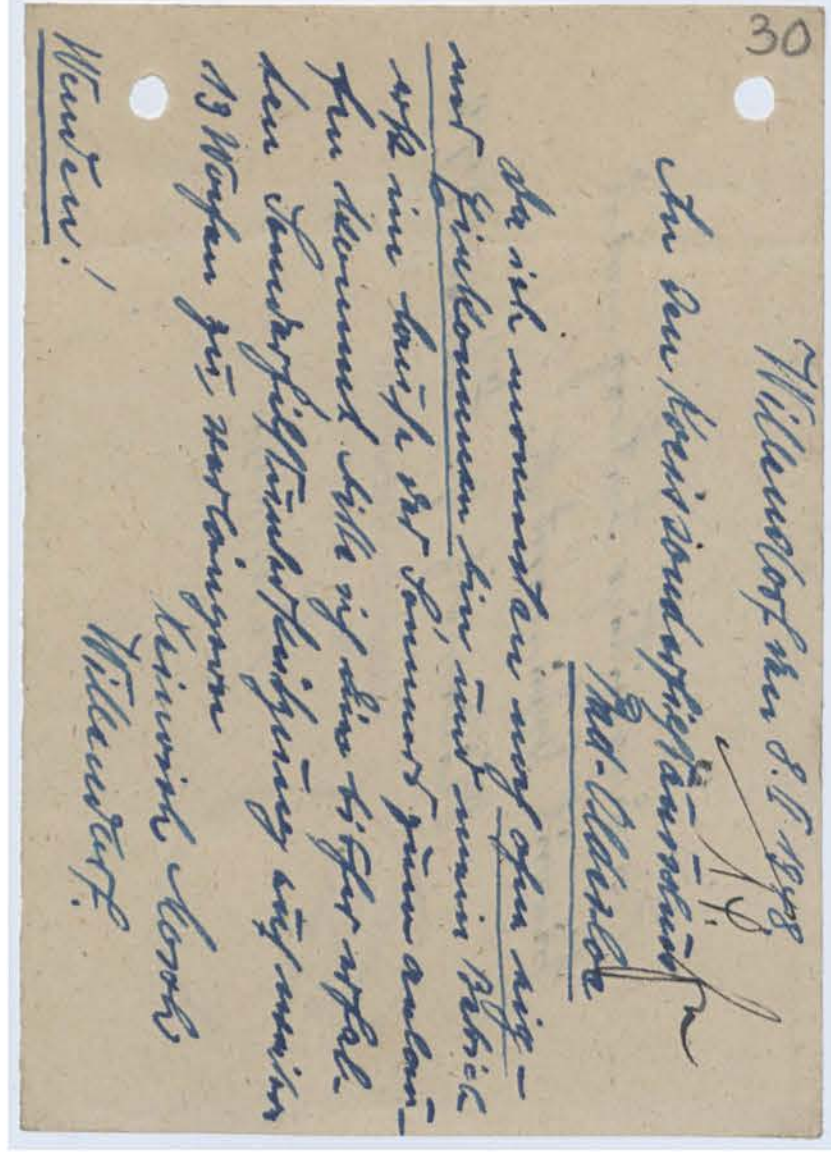 30
Willendorf den 8.V.1948
An den Kreissonderhilfsausschuss
Bad-Oldesloe
Da ich momentan noch ohne eig-
nes Einkommen bin und mein Betrieb
erst im laufe des Sommers zum anlau-
fen kommt bitte ich die bisher erhal-
ten Sonderhilfsunterstützung auf weitere
13 Wochen zu verlängern
Heinrich
Willendorf.
Wenden!